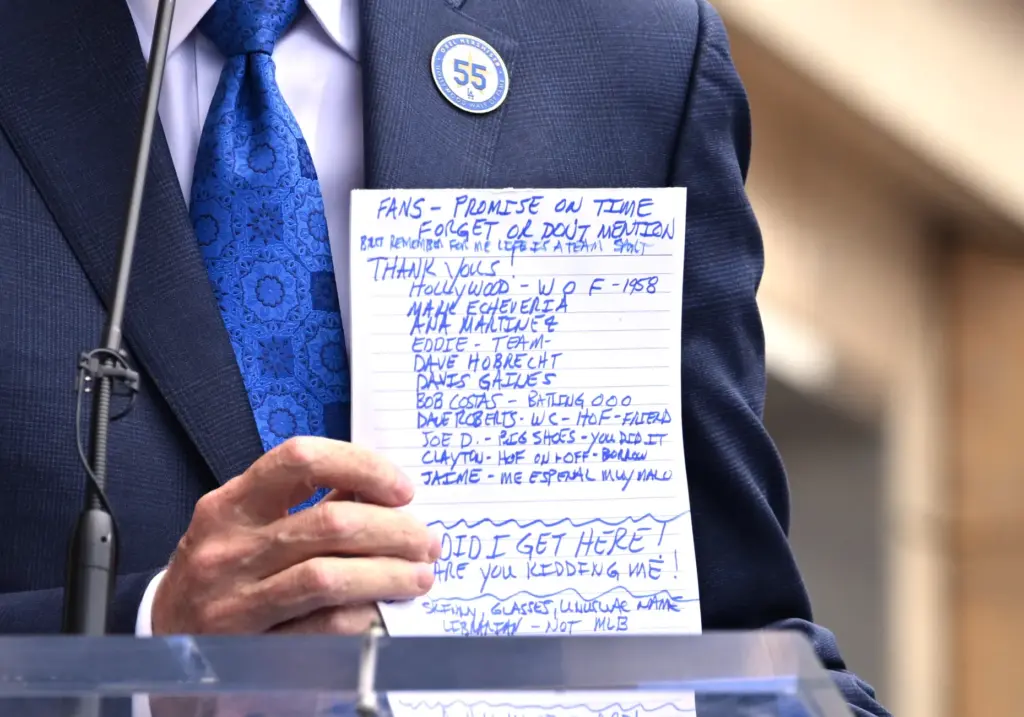 55
LA
FANS - PROMISE ON TIME
FORGET OR DON'T MENTION
BUT REMEMBER FOR ME LIFE IS A TEAM SPORT
THANK YOUS!
HOLLYWOOD - W O F - 1958
MARK ECHEVERIA
ANA MARTINEZ
EDDIE - TEAM-
DAVE HOBRECHT
DAVIS GAINES
BOB COSTAS - BATTING 000
DAVE ROBERTS - WC - HOF - FRIEND
JOE D. - BIG SHOES - YOU DID IT
CLAYTON - HOF ON + OFF - BORROW
JAIME - ME ESPENAL MUY MALO
DID I GET HERE!
ARE YOU KIDDING ME!
SKINNY, GLASSES, UNUSUAL NAME
LIBRARIAN - NOT MLB